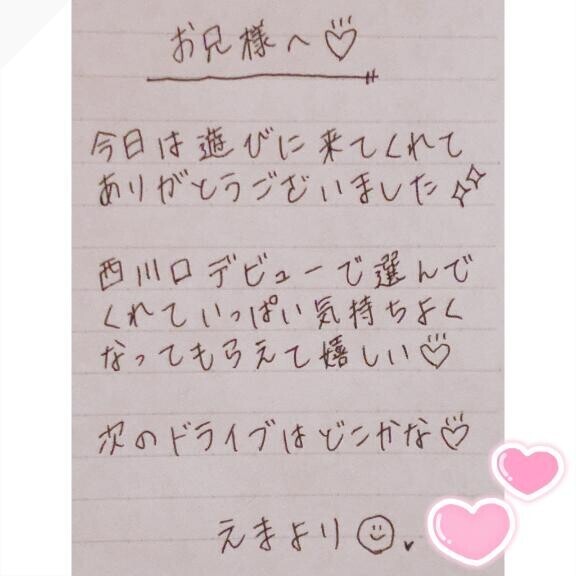 お兄様へ♡
今日は遊びに来てくれて
ありがとうございました✨
西川口デビューで選んで
くれていっぱい気持ちよく
なってもらえて嬉しい♡
次のドライブはどこかな♡
えまより☺